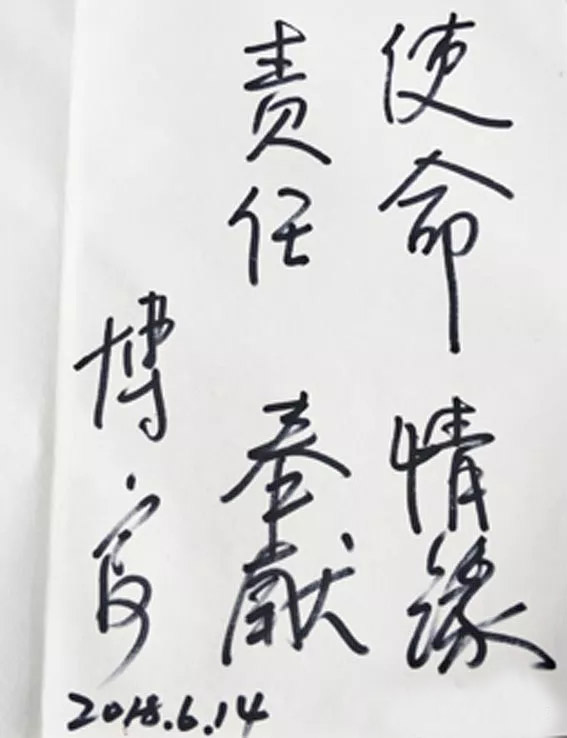 使命 情缘
责任 奉献
博
2018.6.14